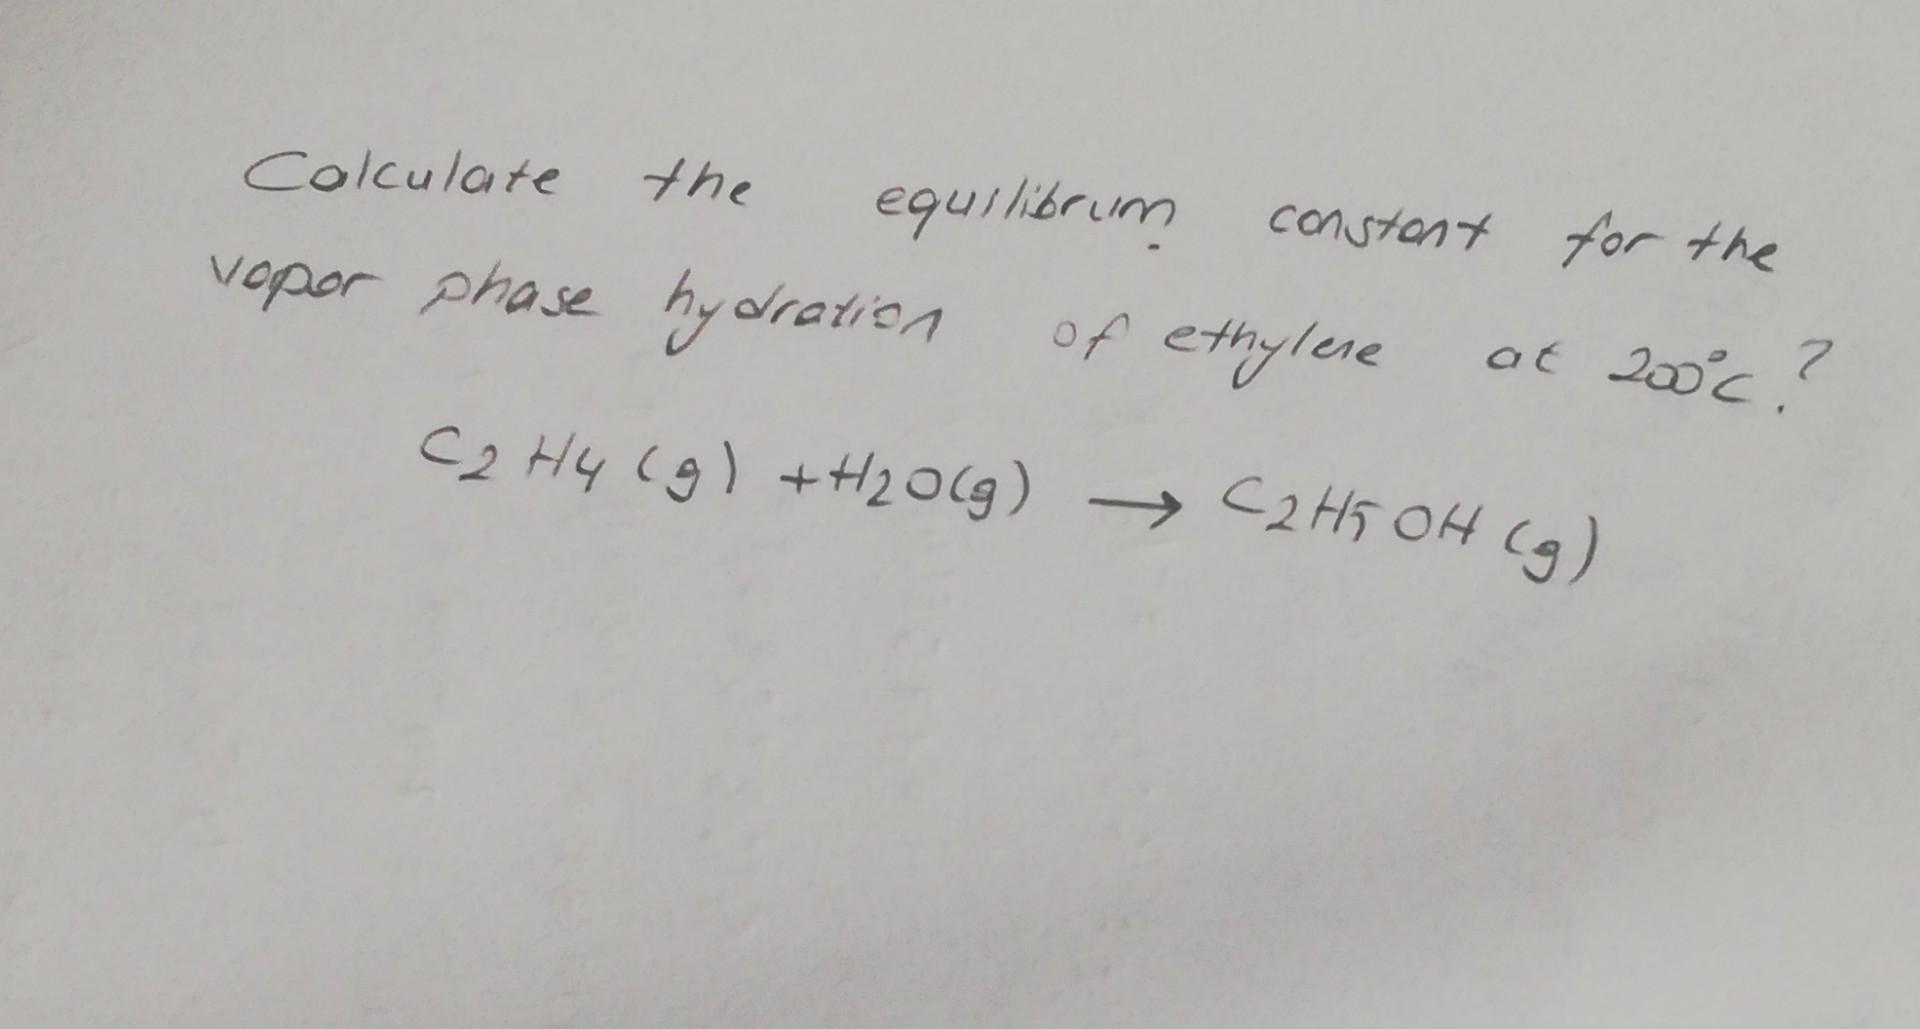 Calculate the equilibrum constant for the
vapor phase hydration of ethylene at 200°C.?
C2H4(g) + H2O(g) → C2H5OH(g)